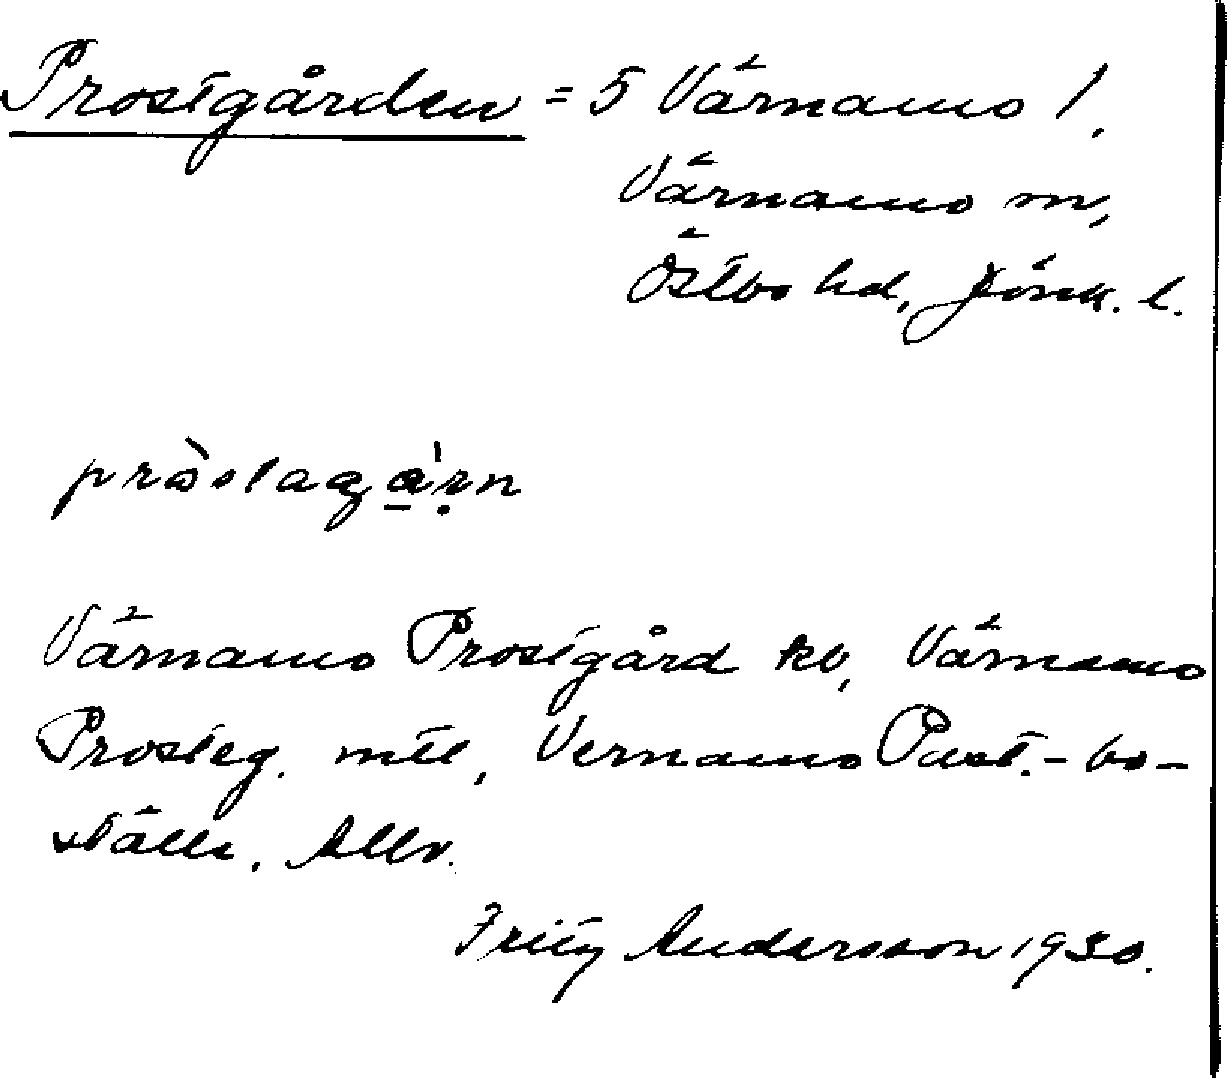 Prostgården = 5 Värnamo 1.
Värnamo sn,
Östbo hd, Jönk. l.
Värnamo Prostgård kb, Värnamo
Prosteg. mtl, Vernamo Past.-bo-
ställe.
Fritz Andersson 1930.